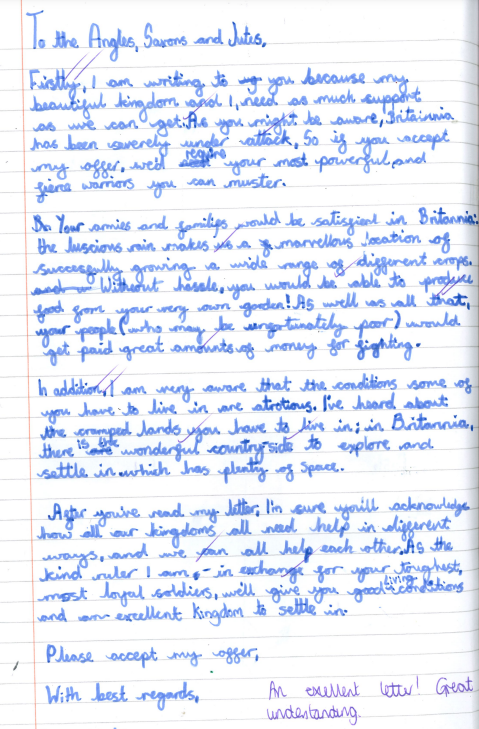 To the Angles, Saxons and Jutes,
Firstly, I am writing to you because my
beautiful kingdom and I, need as much support
as we can get. As you might be aware, Britainnia
has been severely under attack. So if you accept
my offer, we'd require your most powerful, and
fierce warriors you can muster.
Your armies and families would be satisfient in Britannia:
the luscious rain makes a marvellous location of
successfully growing a wide range of different crops.
Without hassle, you would be able to produce
food from your very own garden! As well as all that,
your people (who may be unfortunately poor) would
get paid great amounts of money for fighting.
In addition, I am very aware that the conditions some of
you have to live in are atrotious. I've heard about
the cramped lands you have to live in; in Britannia,
there is the wonderful country-side to explore and
settle in which has plenty of space.
After you've read my letter, I'm sure you'll acknowledge
how all our kingdoms all need help in different
ways, and we can all help each other. As the
kind ruler I am, - in exchange for your toughest,
most loyal soldiers, we'll give you good living conditions
and an excellent kingdom to settle in.
Please accept my offer,
With best regards,
An excellent letter! Great
understanding.